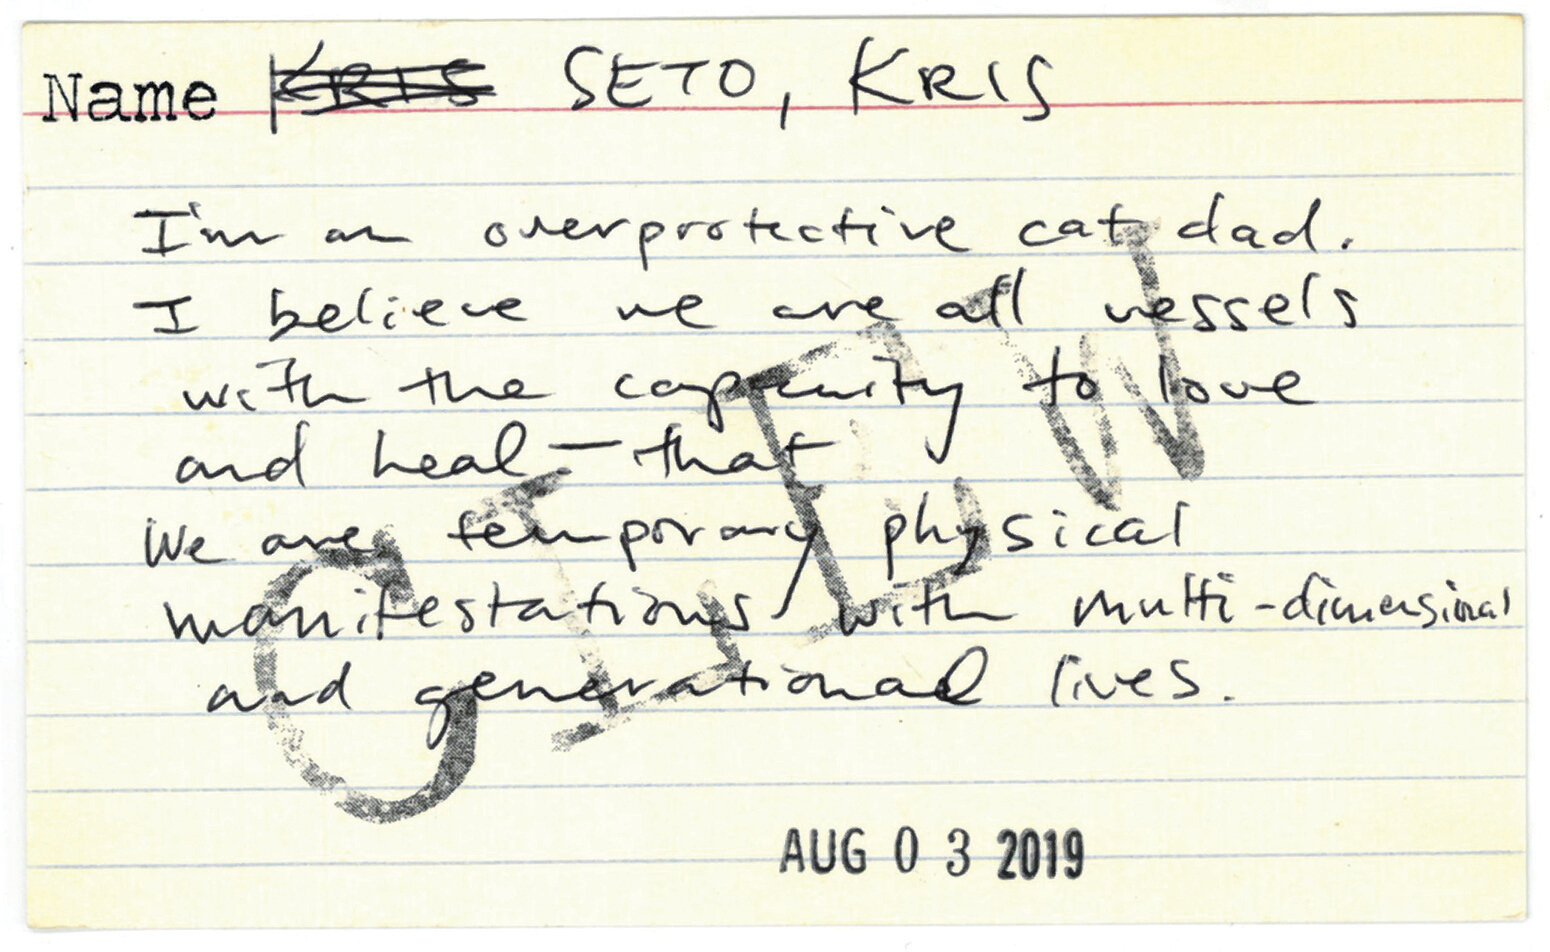 Name KRIS SETO, KRIS
I'm an overprotective cat dad.
I believe we are all vessels
with the capacity to love
and heal - that
We are temporary physical
manifestations with multi-dimensional
and generational lives.
CLEW
AUG 03 2019